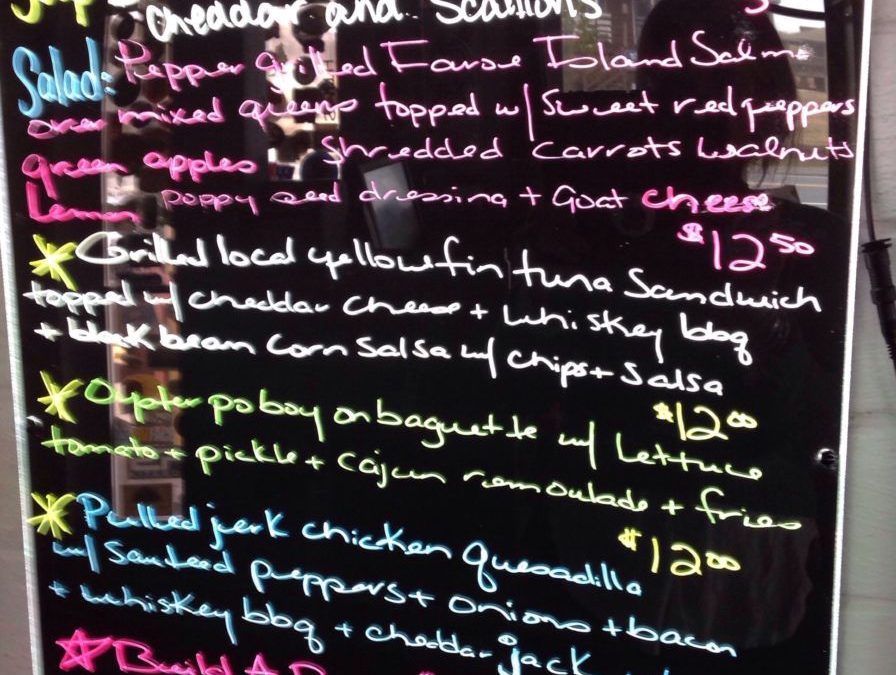 cheddar and scallions
Salad: Pepper grilled Faroe Island Salmon
over mixed greens topped w/ sweet red peppers
green apples shredded carrots walnuts
Lemon poppy seed dressing + Goat cheese
$12.50
* Grilled local yellowfin tuna Sandwich
topped w/ cheddar cheese + whiskey bbq
+ black bean corn salsa w/ chips + salsa
$12.00
* Oyster po boy on baguette w/ Lettuce
tomato + pickle + cajun remoulade + fries
$12.00
* Pulled jerk chicken quesadilla
w/ Sauteed peppers + onions + bacon
+ whiskey bbq + cheddar jack
Build A